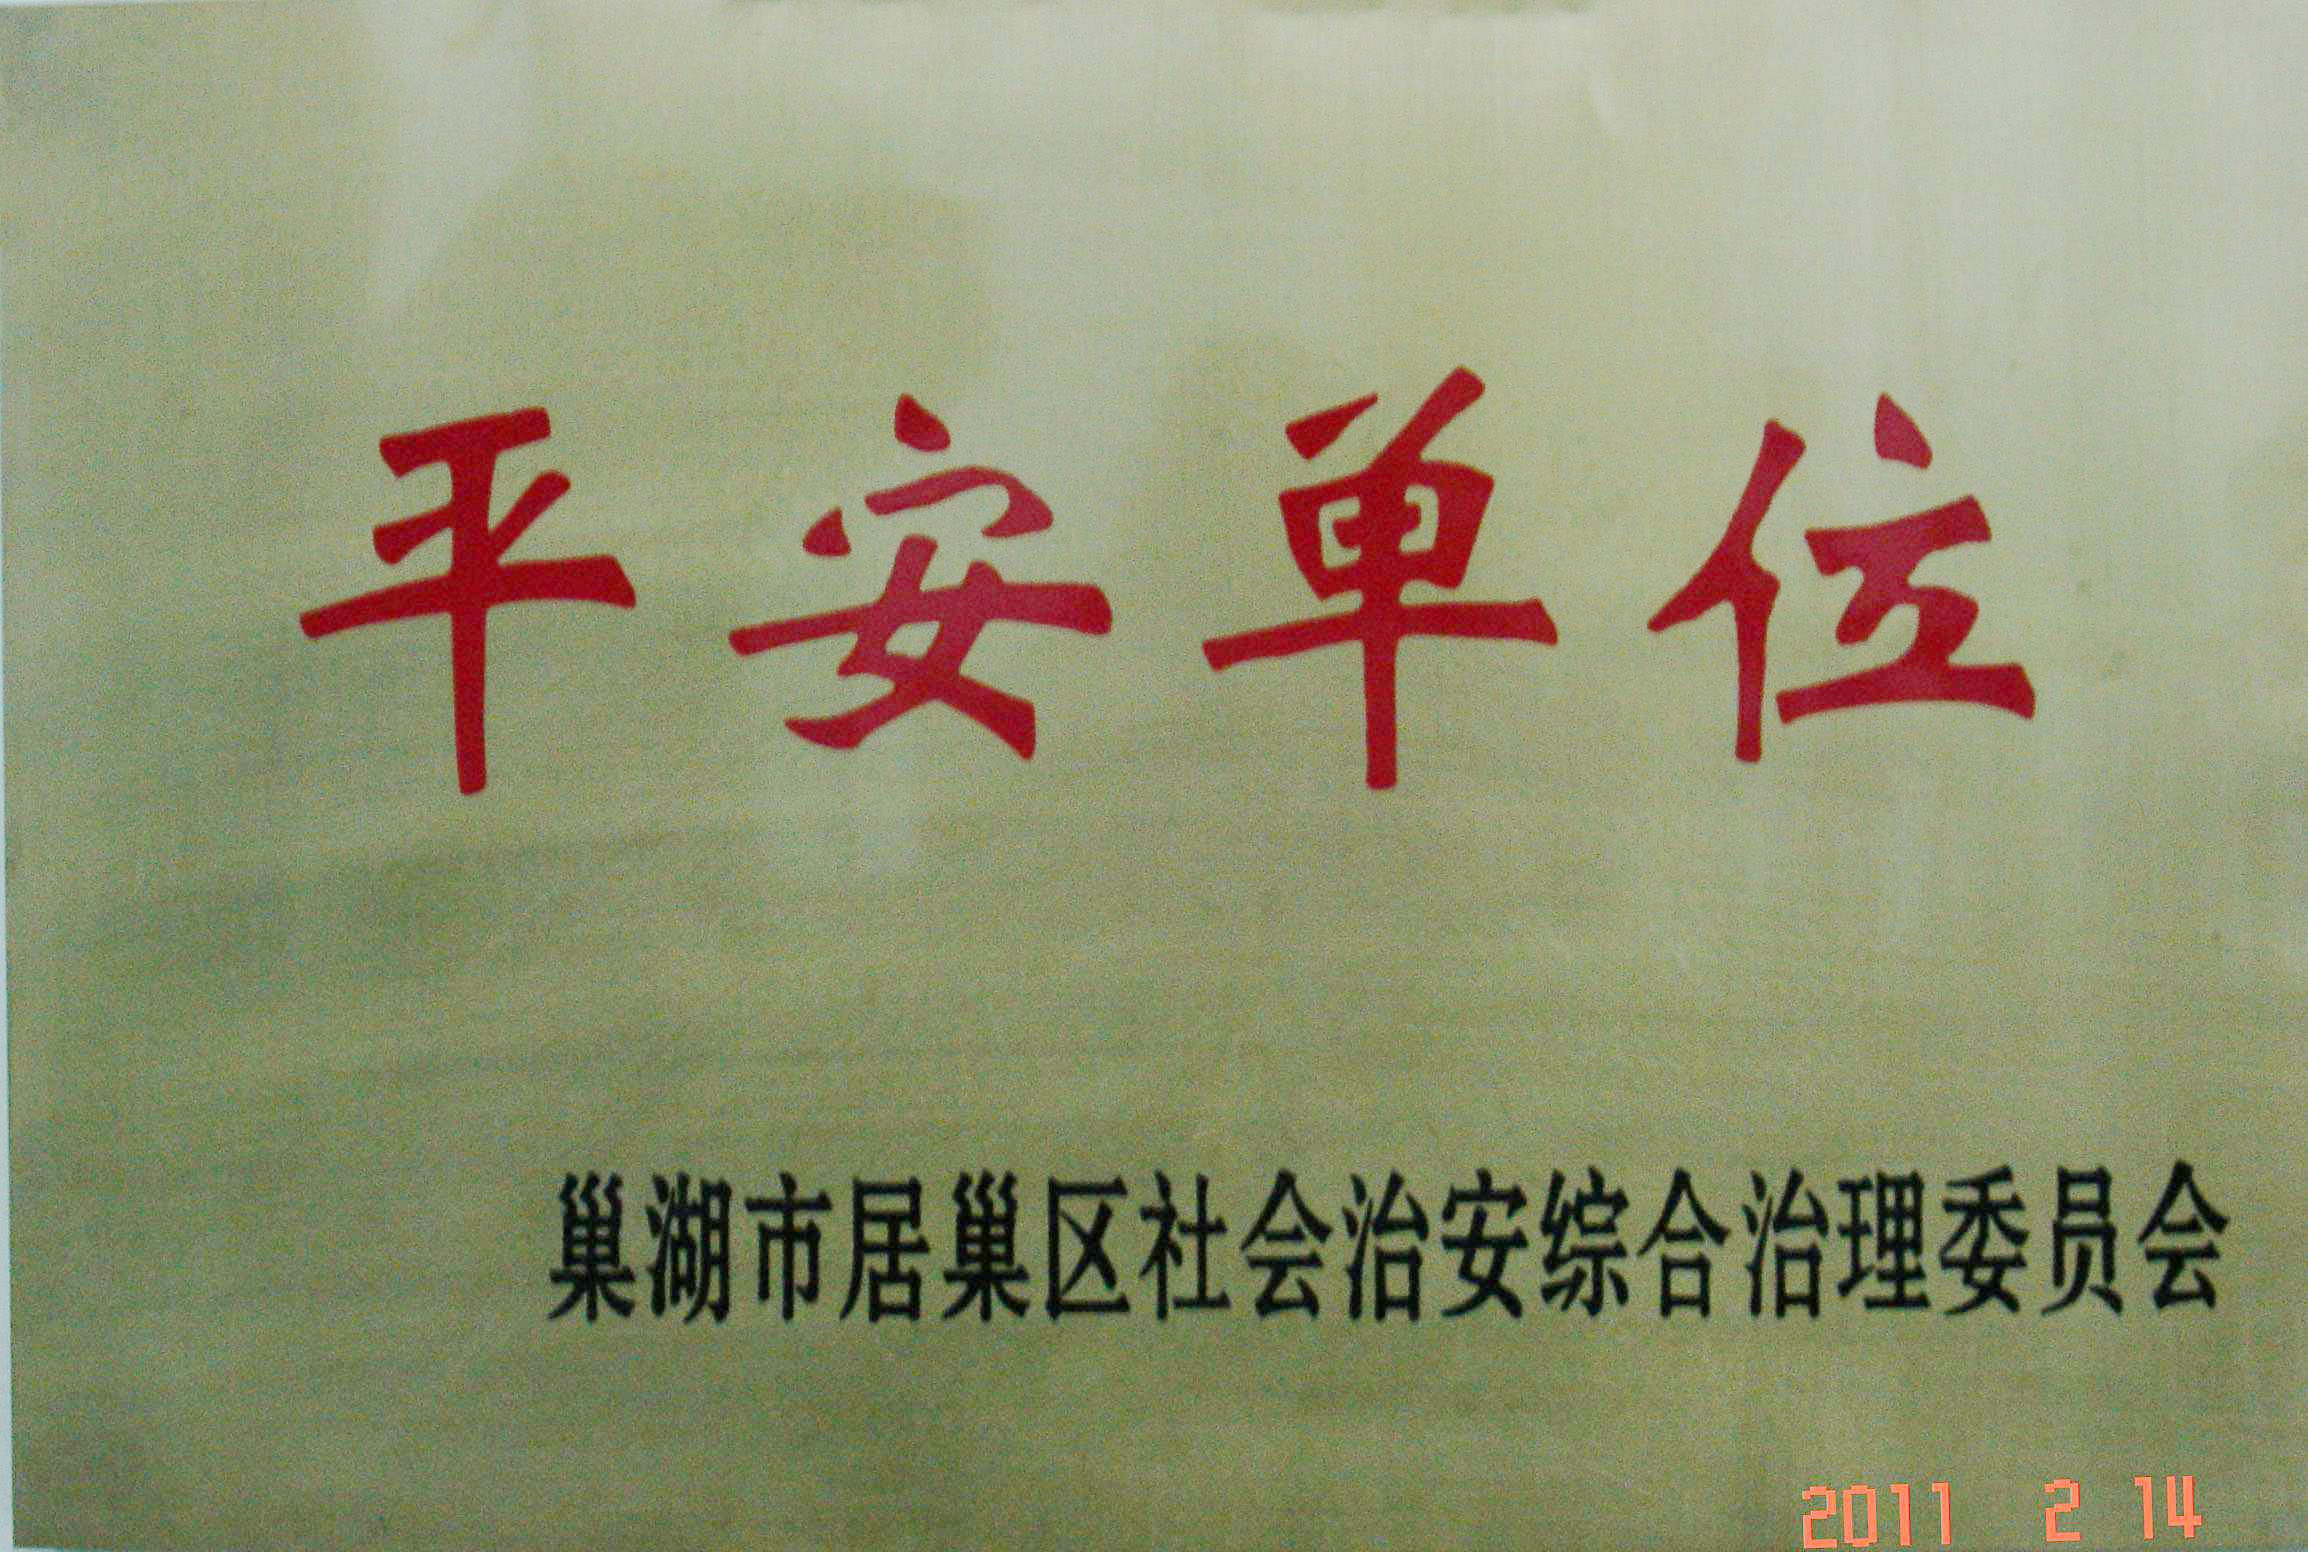 平安单位
巢湖市居巢区社会治安综合治理委员会
2011 2 14